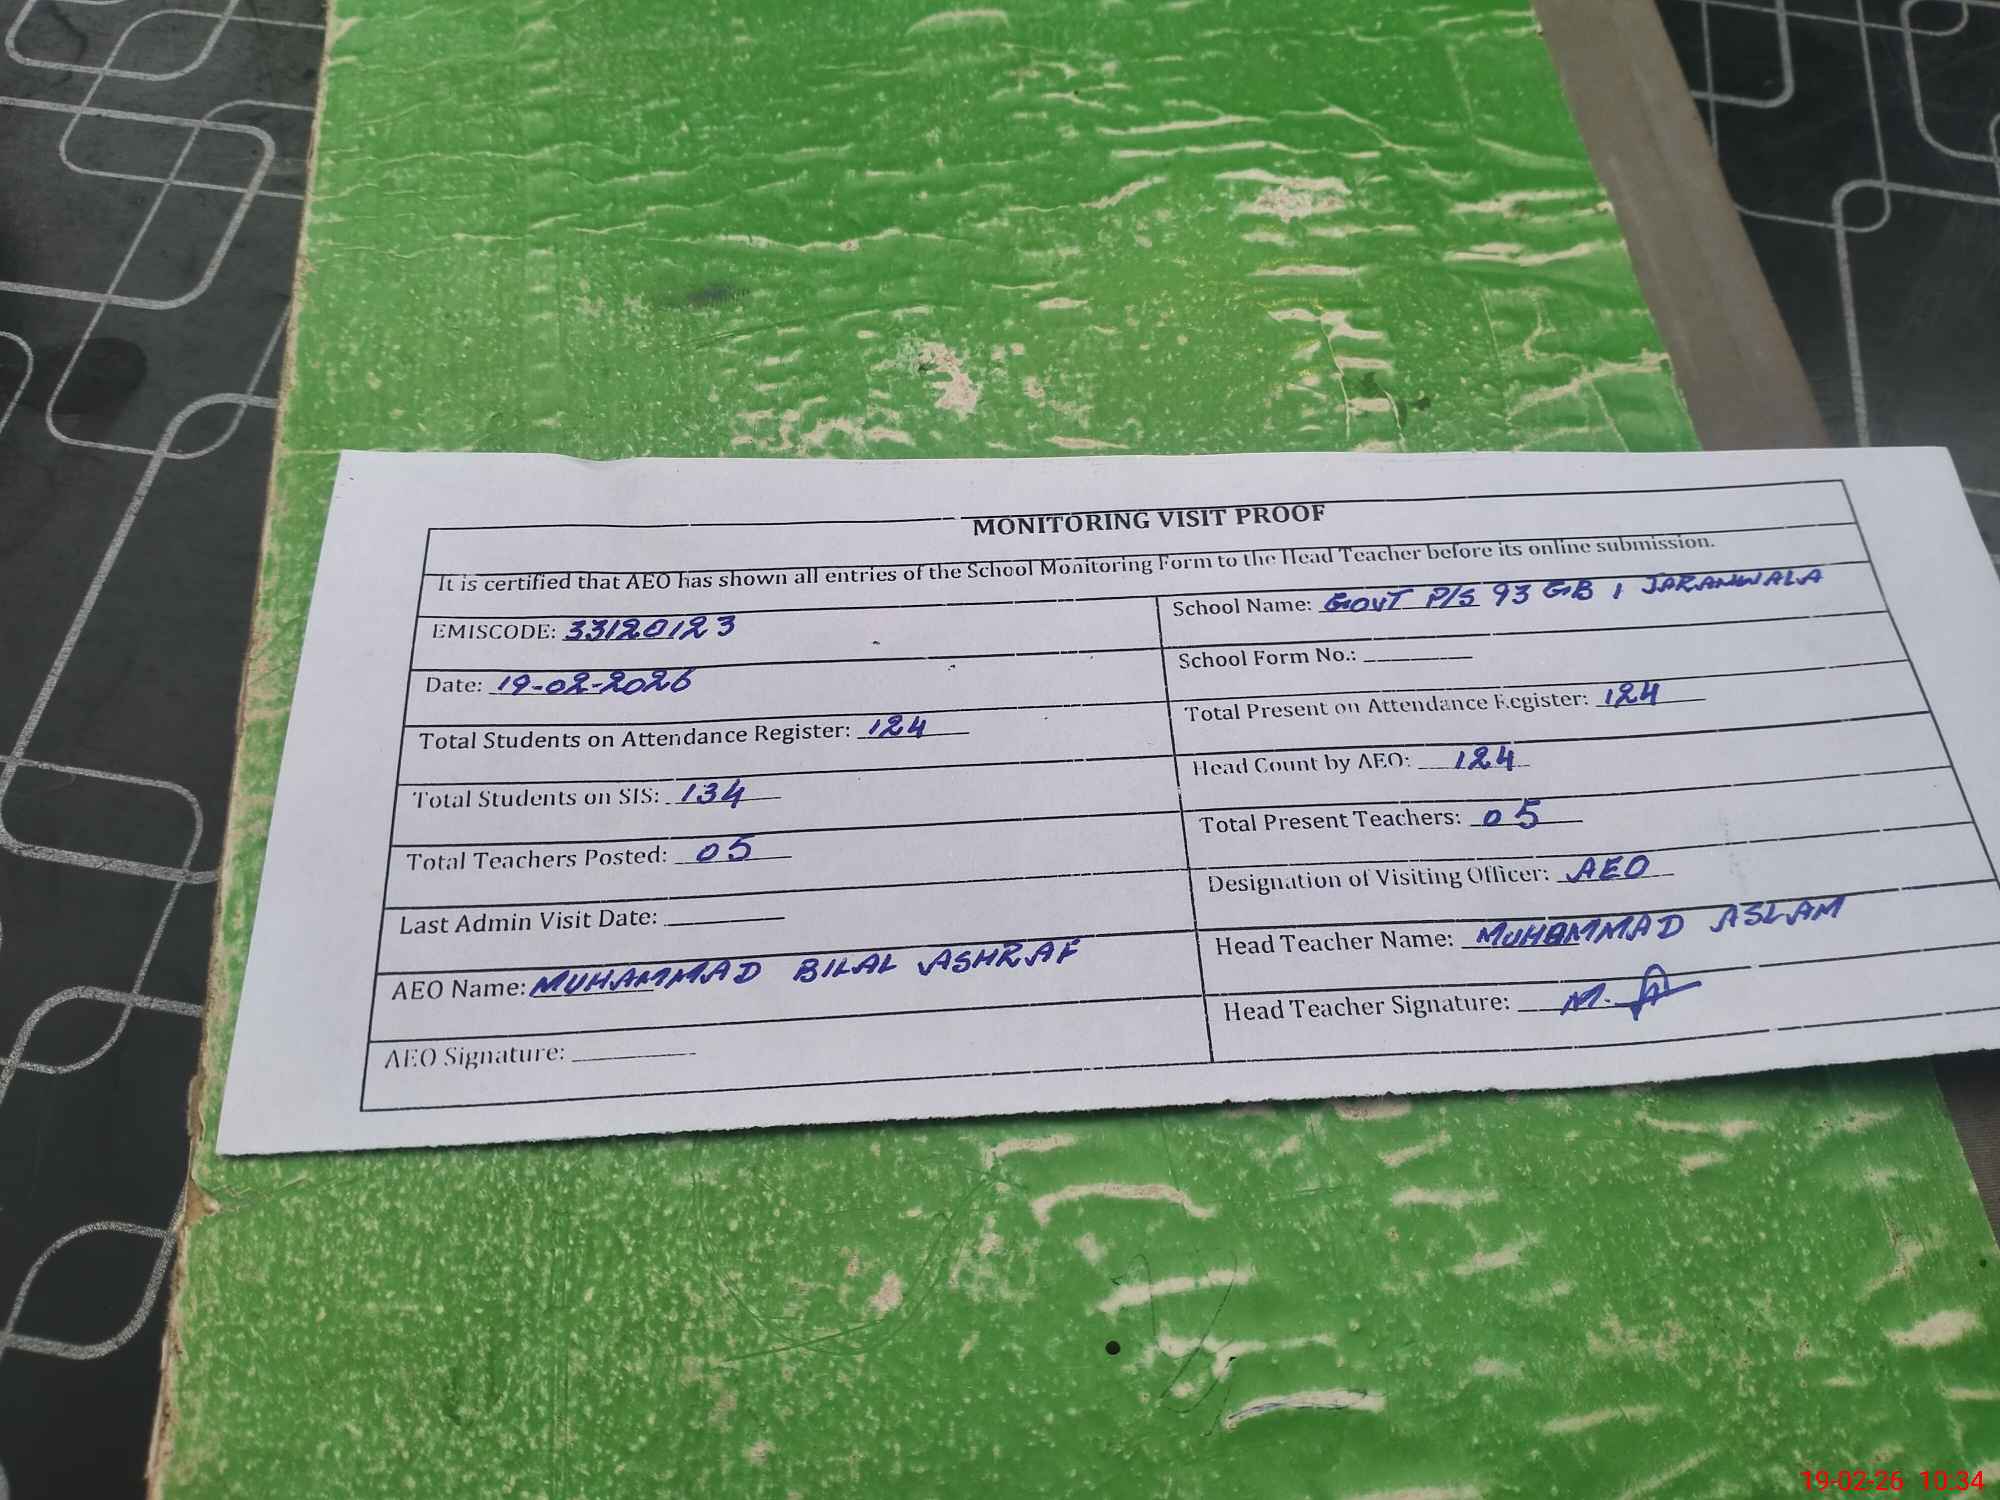 MONITORING VISIT PROOF
It is certified that AEO has shown all entries of the School Monitoring Form to the Head Teacher before its online submission.
EMISCODE: 33120123
School Name: GOVT P/S 93 GB 1 JARANWALA
Date: 19-02-2026
School Form No.:
Total Students on Attendance Register: 124
Total Present on Attendance Register: 124
Total Students on SIS: 134
Head Count by AEO: 124
Total Teachers Posted: 05
Total Present Teachers: 05
Last Admin Visit Date:
Designation of Visiting Officer: AEO
AEO Name: MUHAMMAD BILAL ASHRAF
Head Teacher Name: MUHAMMAD ASLAM
AEO Signature:
Head Teacher Signature: M. A
19-02-26 10:34